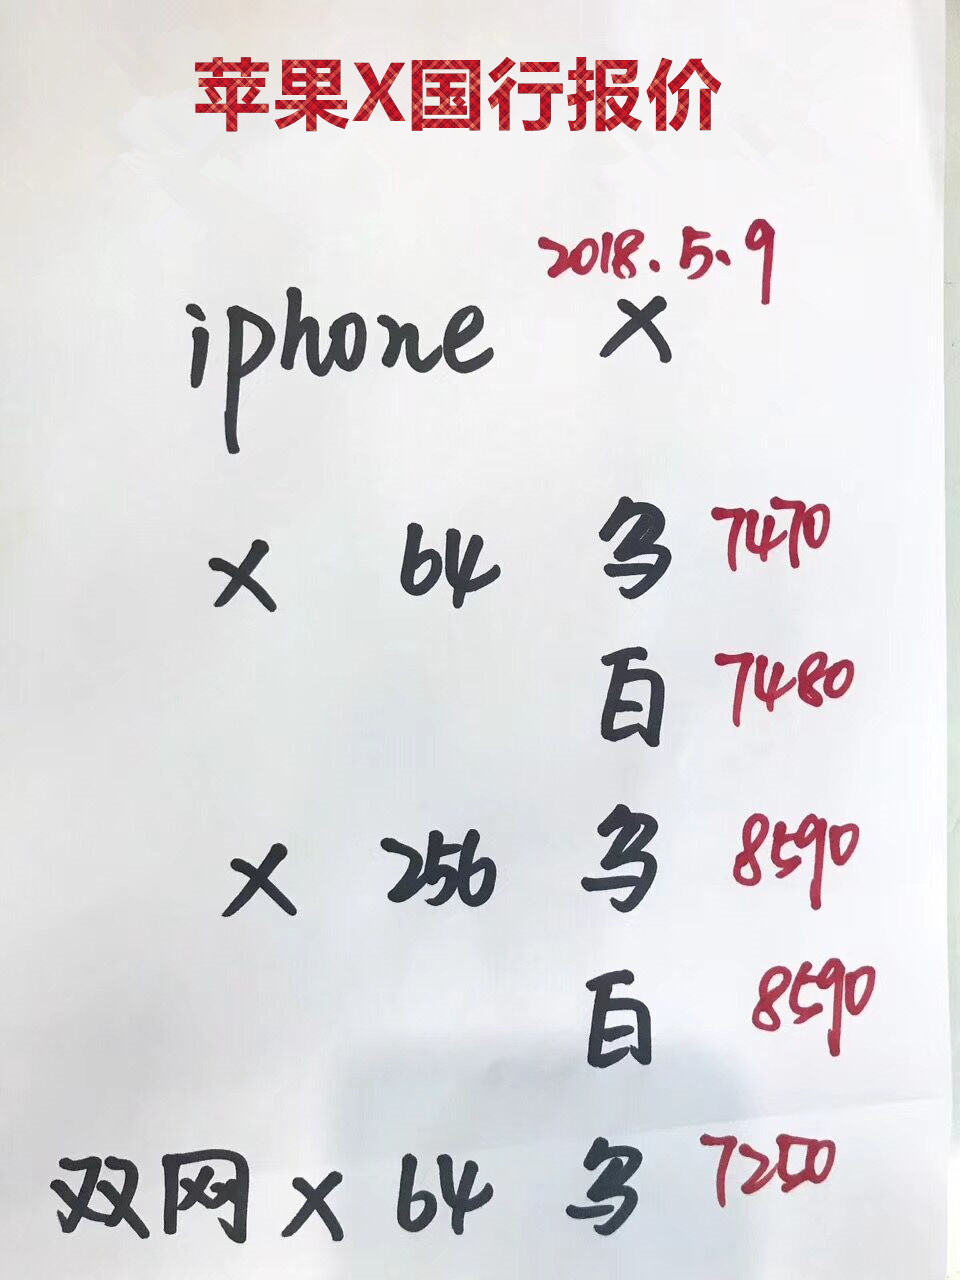 苹果X国行报价
2018.5.9
iphone X
X 64 乌 7470
白 7480
X 256 乌 8590
白 8590
双网 X 64 乌 7250